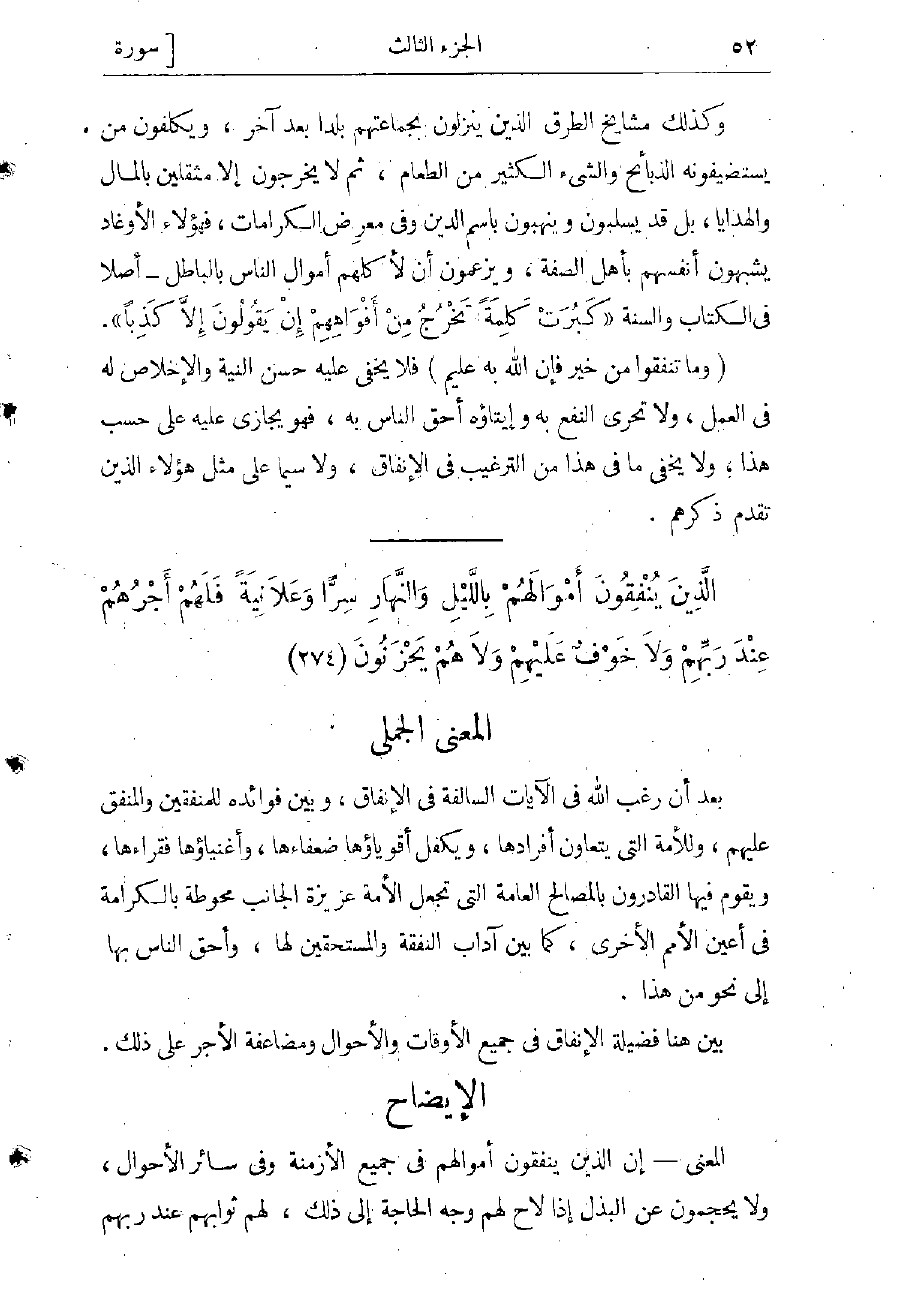 ٥٢ الجزء الثالث [ سورة
وكذلك مشايخ الطرق الذين ينزلون بجماعتهم بلدا بعد آخر ، ويكلفون من
يستضيفونه الذبائح والشىء الكثير من الطعام ، ثم لا يخرجون إلا مثقلين بالمال
والهدايا ، بل قد يسلبون وينهبون باسم الدين وفى معرض الكرامات ، فهؤلاء الأوغاد
يشبهون أنفسهم بأهل الصفة ، ويزعمون أن لأكلهم أموال الناس بالباطل ــ أصلا
فى الكتاب والسنة «كَبُرَتْ كَلِمَةً تَخْرُجُ مِنْ أَفْوَاهِهِمْ إِنْ يَقُولُونَ إِلاَّ كَذِباً».
( وما تنفقوا من خير فإن الله به عليم ) فلا يخفى عليه حسن النية والإخلاص له
فى العمل ، ولا تحرى النفع به وإيتاؤه أحق الناس به ، فهو يجازى عليه على حسب
هذا ؛ ولا يخفى ما فى هذا من الترغيب فى الإنفاق ، ولا سيما على مثل هؤلاء الذين
تقدم ذكرهم .
الَّذِينَ يُنْفِقُونَ أَمْوَالَهُمْ بِاللَّيْلِ وَالنَّهَارِ سِرًّا وَعَلاَنِيَةً فَلَهُمْ أَجْرُهُمْ
عِنْدَ رَبِّهِمْ وَلاَ خَوْفٌ عَلَيْهِمْ وَلاَ هُمْ يَحْزَنُونَ (٢٧٤)
المعنى الجملى
بعد أن رغب الله فى الآيات السالفة فى الإنفاق ، وبين فوائده للمنفقين والمنفق
عليهم ، وللأمة التى يتعاون أفرادها ، ويكفل أقوياؤها ضعفاءها ، وأغنياؤها فقراءها ،
ويقوم فيها القادرون بالمصالح العامة التى تجعل الأمة عزيزة الجانب محوطة بالكرامة
فى أعين الأمم الأخرى ، كما بين آداب النفقة والمستحقين لها ، وأحق الناس بها
إلى نحو من هذا .
بين هنا فضيلة الإنفاق فى جميع الأوقات والأحوال ومضاعفة الأجر على ذلك .
الإيضاح
المعنى — إن الذين ينفقون أموالهم فى جميع الأزمنة وفى سائر الأحوال ،
ولا يحجمون عن البذل إذا لاح لهم وجه الحاجة إلى ذلك ، لهم ثوابهم عند ربهم